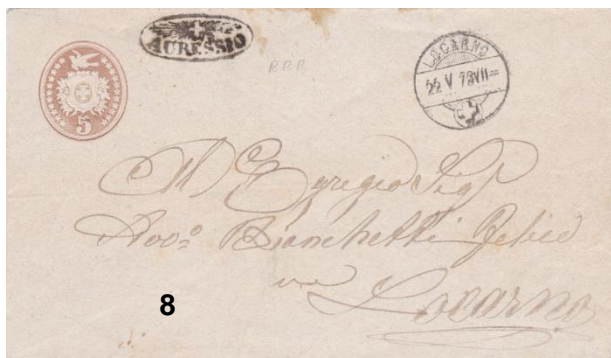 AURESSIO
RRR
LOCARNO
22 V 78 VII=
5
All Egregio Sig.r
Avv.o Bianchetti Felice
in
Locarno
8